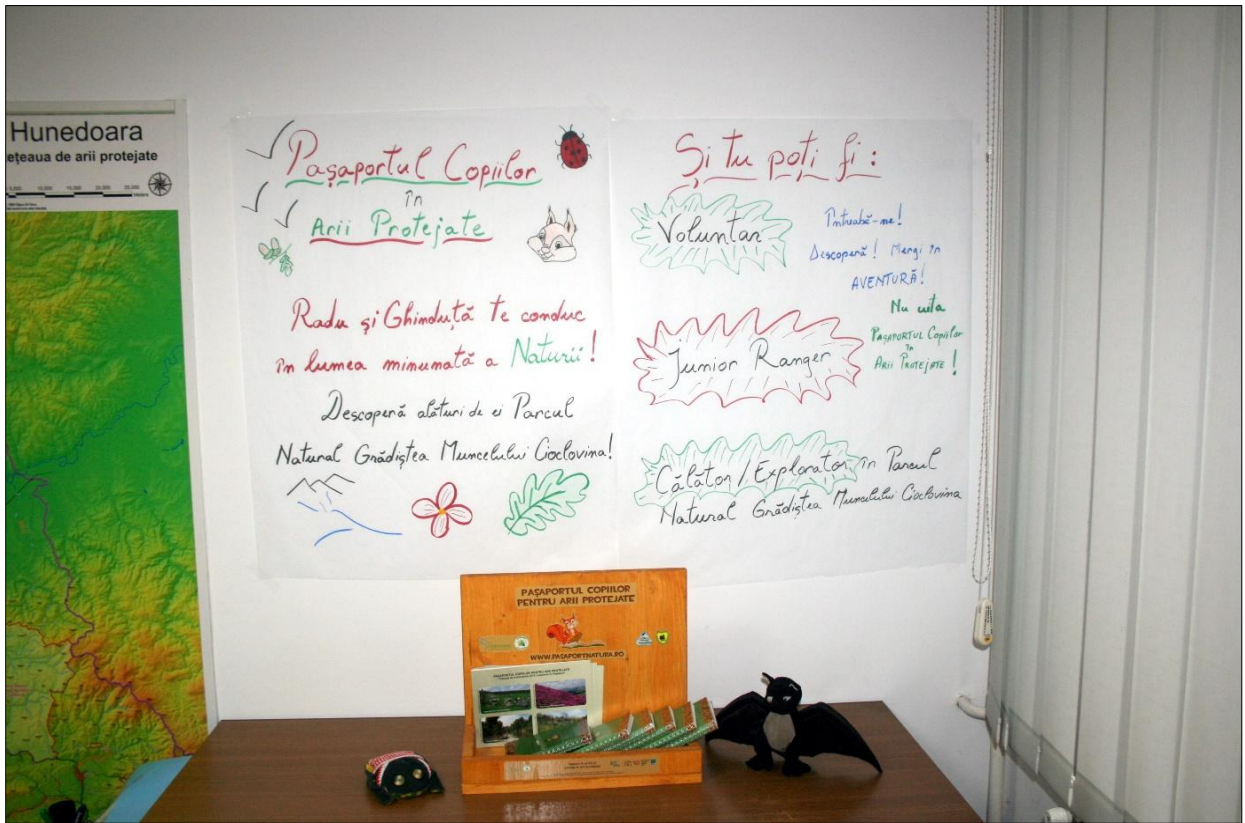 Hunedoara
ețeaua de arii protejate
Pașaportul Copiilor
în
Arii Protejate
Radu și Ghinduță te conduc
în lumea minunată a Naturii!
Descoperă alături de ei Parcul
Natural Grădiștea Muncelului Cioclovina!
Și tu poți fi:
Voluntar
Întreabă-ne!
Descoperă! Mergi în
AVENTURĂ!
Nu uita
PAȘAPORTUL Copiilor
în
ARII PROTEJATE!
Junior Ranger
Călător/Explorator în Parcul
Natural Grădiștea Muncelului Cioclovina
PAȘAPORTUL COPIILOR
PENTRU ARII PROTEJATE
WWW.PASAPORTNATURA.RO